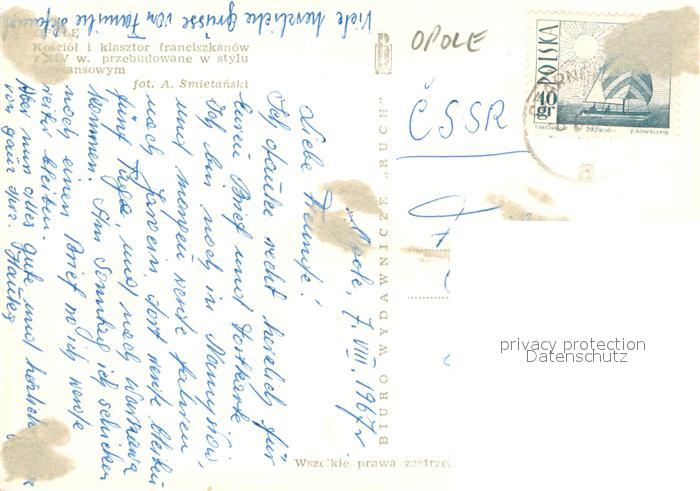 OPOLE
Kościół i klasztor franciszkanów
z XIV w. przebudowane w stylu
fot. A. Śmietański
Viele herzliche Grüsse von Familie
OPOLE
POLSKA
40 gr
Z. KOWALSKI
ČSSR
BIURO WYDAWNICZE „RUCH"
Opole, 7. VIII. 1967 r.
Liebe Freunde!
Ich danke recht herzlich für
Euren Brief und
Ich bin noch in Namysłów,
und morgen werde fahren
nach dort werde bleiben
fünf Tage, und nach Warszawa
kommen. Am Sonntag ich schicken
noch einen Brief wo ich werde
weiter bleiben.
Aber nun alles gute und herzlich
von ganz
Wszelkie prawa zastrze
privacy protection
Datenschutz